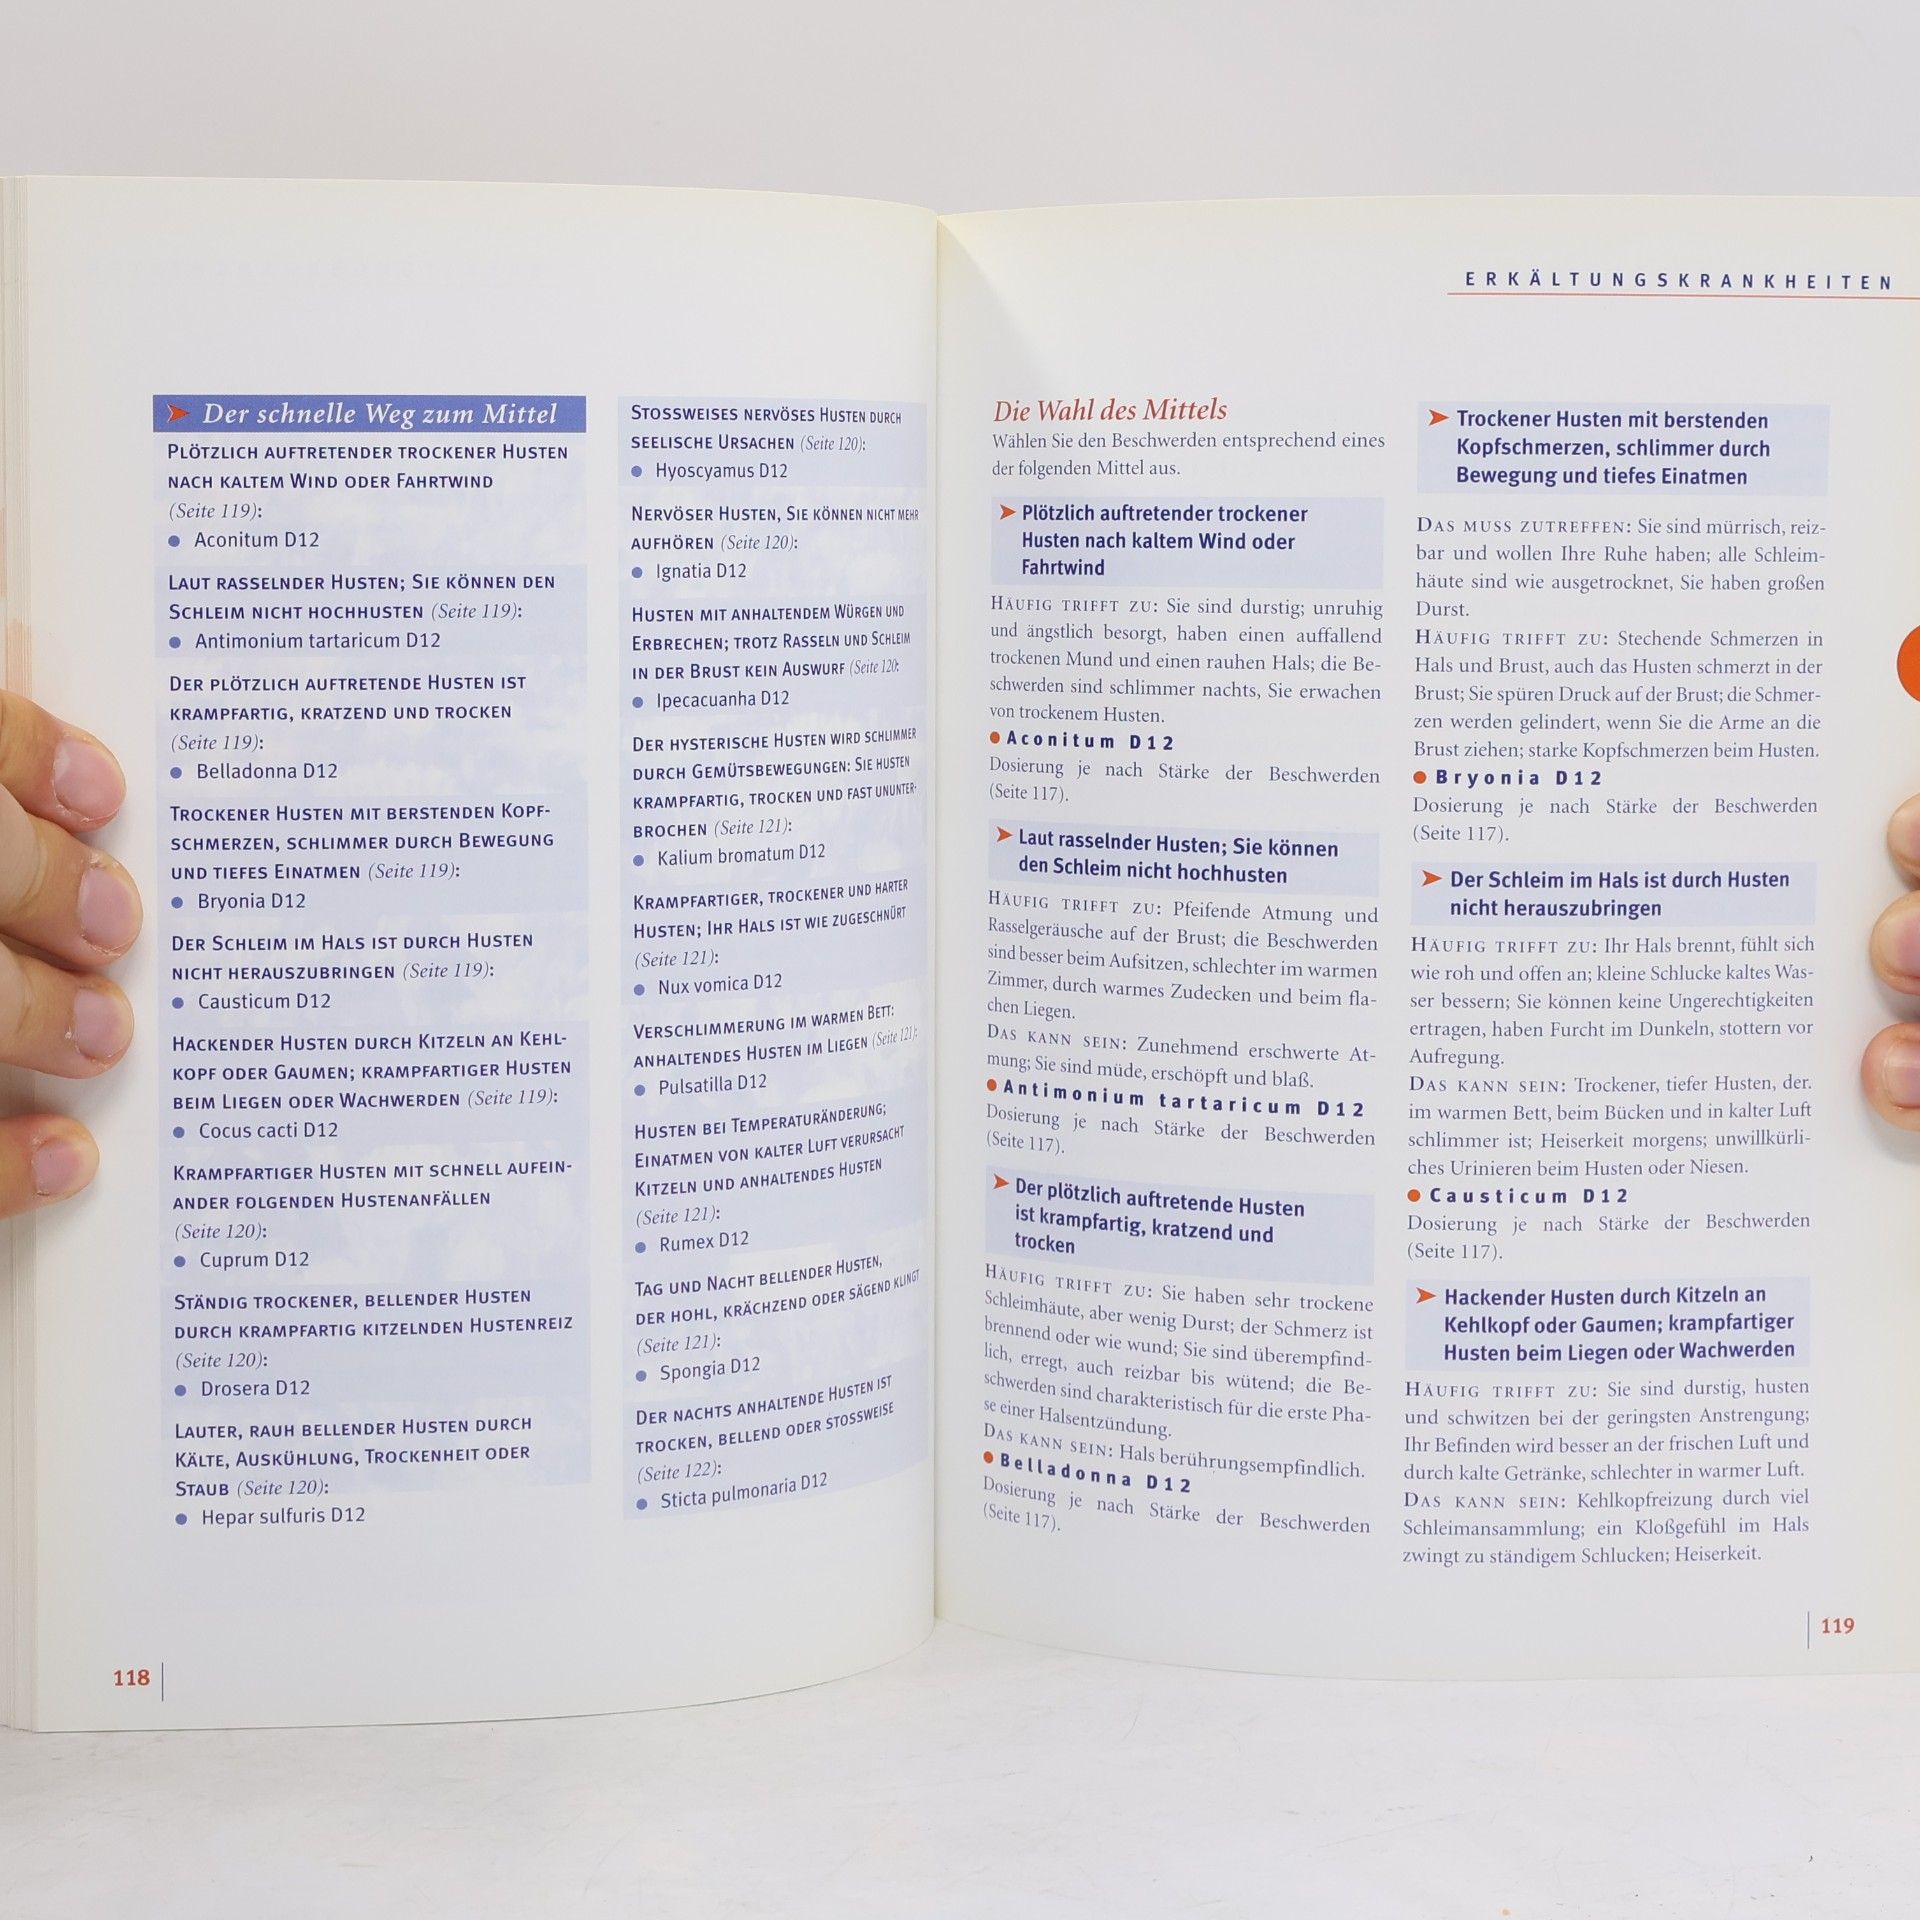 Der schnelle Weg zum Mittel
PLÖTZLICH AUFTRETENDER TROCKENER HUSTEN
NACH KALTEM WIND ODER FAHRTWIND
(Seite 119):
● Aconitum D12
LAUT RASSELNDER HUSTEN; SIE KÖNNEN DEN
SCHLEIM NICHT HOCHHUSTEN (Seite 119):
● Antimonium tartaricum D12
DER PLÖTZLICH AUFTRETENDE HUSTEN IST
KRAMPFARTIG, KRATZEND UND TROCKEN
(Seite 119):
● Belladonna D12
TROCKENER HUSTEN MIT BERSTENDEN KOPF-
SCHMERZEN, SCHLIMMER DURCH BEWEGUNG
UND TIEFES EINATMEN (Seite 119):
● Bryonia D12
DER SCHLEIM IM HALS IST DURCH HUSTEN
NICHT HERAUSZUBRINGEN (Seite 119):
● Causticum D12
HACKENDER HUSTEN DURCH KITZELN AN KEHL-
KOPF ODER GAUMEN; KRAMPFARTIGER HUSTEN
BEIM LIEGEN ODER WACHWERDEN (Seite 119):
● Cocus cacti D12
KRAMPFARTIGER HUSTEN MIT SCHNELL AUFEIN-
ANDER FOLGENDEN HUSTENANFÄLLEN
(Seite 120):
● Cuprum D12
STÄNDIG TROCKENER, BELLENDER HUSTEN
DURCH KRAMPFARTIG KITZELNDEN HUSTENREIZ
(Seite 120):
● Drosera D12
LAUTER, RAUH BELLENDER HUSTEN DURCH
KÄLTE, AUSKÜHLUNG, TROCKENHEIT ODER
STAUB (Seite 120):
● Hepar sulfuris D12
STOSSWEISES NERVÖSES HUSTEN DURCH
SEELISCHE URSACHEN (Seite 120):
● Hyoscyamus D12
NERVÖSER HUSTEN, SIE KÖNNEN NICHT MEHR
AUFHÖREN (Seite 120):
● Ignatia D12
HUSTEN MIT ANHALTENDEM WÜRGEN UND
ERBRECHEN; TROTZ RASSELN UND SCHLEIM
IN DER BRUST KEIN AUSWURF (Seite 120:
● Ipecacuanha D12
DER HYSTERISCHE HUSTEN WIRD SCHLIMMER
DURCH GEMÜTSBEWEGUNGEN: SIE HUSTEN
KRAMPFARTIG, TROCKEN UND FAST UNUNTER-
BROCHEN (Seite 121):
● Kalium bromatum D12
KRAMPFARTIGER, TROCKENER UND HARTER
HUSTEN; IHR HALS IST WIE ZUGESCHNÜRT
(Seite 121):
● Nux vomica D12
VERSCHLIMMERUNG IM WARMEN BETT:
ANHALTENDES HUSTEN IM LIEGEN (Seite 121):
● Pulsatilla D12
HUSTEN BEI TEMPERATURÄNDERUNG;
EINATMEN VON KALTER LUFT VERURSACHT
KITZELN UND ANHALTENDES HUSTEN
(Seite 121):
● Rumex D12
TAG UND NACHT BELLENDER HUSTEN,
DER HOHL, KRÄCHZEND ODER SÄGEND KLINGT
(Seite 121):
● Spongia D12
DER NACHTS ANHALTENDE HUSTEN IST
TROCKEN, BELLEND ODER STOSSWEISE
(Seite 122):
● Sticta pulmonaria D12
118
ERKÄLTUNGSKRANKHEITEN
Die Wahl des Mittels
Wählen Sie den Beschwerden entsprechend eines
der folgenden Mittel aus.
Plötzlich auftretender trockener
Husten nach kaltem Wind oder
Fahrtwind
HÄUFIG TRIFFT ZU: Sie sind durstig; unruhig
und ängstlich besorgt, haben einen auffallend
trockenen Mund und einen rauhen Hals; die Be-
schwerden sind schlimmer nachts, Sie erwachen
von trockenem Husten.
● Aconitum D12
Dosierung je nach Stärke der Beschwerden
(Seite 117).
Laut rasselnder Husten; Sie können
den Schleim nicht hochhusten
HÄUFIG TRIFFT ZU: Pfeifende Atmung und
Rasselgeräusche auf der Brust; die Beschwerden
sind besser beim Aufsitzen, schlechter im warmen
Zimmer, durch warmes Zudecken und beim fla-
chen Liegen.
DAS KANN SEIN: Zunehmend erschwerte At-
mung; Sie sind müde, erschöpft und blaß.
● Antimonium tartaricum D12
Dosierung je nach Stärke der Beschwerden
(Seite 117).
Der plötzlich auftretende Husten
ist krampfartig, kratzend und
trocken
HÄUFIG TRIFFT ZU: Sie haben sehr trockene
Schleimhäute, aber wenig Durst; der Schmerz ist
brennend oder wie wund; Sie sind überempfind-
lich, erregt, auch reizbar bis wütend; die Be-
schwerden sind charakteristisch für die erste Pha-
se einer Halsentzündung.
DAS KANN SEIN: Hals berührungsempfindlich.
● Belladonna D12
Dosierung je nach Stärke der Beschwerden
(Seite 117).
Trockener Husten mit berstenden
Kopfschmerzen, schlimmer durch
Bewegung und tiefes Einatmen
DAS MUSS ZUTREFFEN: Sie sind mürrisch, reiz-
bar und wollen Ihre Ruhe haben; alle Schleim-
häute sind wie ausgetrocknet, Sie haben großen
Durst.
HÄUFIG TRIFFT ZU: Stechende Schmerzen in
Hals und Brust, auch das Husten schmerzt in der
Brust; Sie spüren Druck auf der Brust; die Schmer-
zen werden gelindert, wenn Sie die Arme an die
Brust ziehen; starke Kopfschmerzen beim Husten.
● Bryonia D12
Dosierung je nach Stärke der Beschwerden
(Seite 117).
Der Schleim im Hals ist durch Husten
nicht herauszubringen
HÄUFIG TRIFFT ZU: Ihr Hals brennt, fühlt sich
wie roh und offen an; kleine Schlucke kaltes Was-
ser bessern; Sie können keine Ungerechtigkeiten
ertragen, haben Furcht im Dunkeln, stottern vor
Aufregung.
DAS KANN SEIN: Trockener, tiefer Husten, der.
im warmen Bett, beim Bücken und in kalter Luft
schlimmer ist; Heiserkeit morgens; unwillkürli-
ches Urinieren beim Husten oder Niesen.
● Causticum D12
Dosierung je nach Stärke der Beschwerden
(Seite 117).
Hackender Husten durch Kitzeln an
Kehlkopf oder Gaumen; krampfartiger
Husten beim Liegen oder Wachwerden
HÄUFIG TRIFFT ZU: Sie sind durstig, husten
und schwitzen bei der geringsten Anstrengung;
Ihr Befinden wird besser an der frischen Luft und
durch kalte Getränke, schlechter in warmer Luft.
DAS KANN SEIN: Kehlkopfreizung durch viel
Schleimansammlung; ein Kloßgefühl im Hals
zwingt zu ständigem Schlucken; Heiserkeit.
119